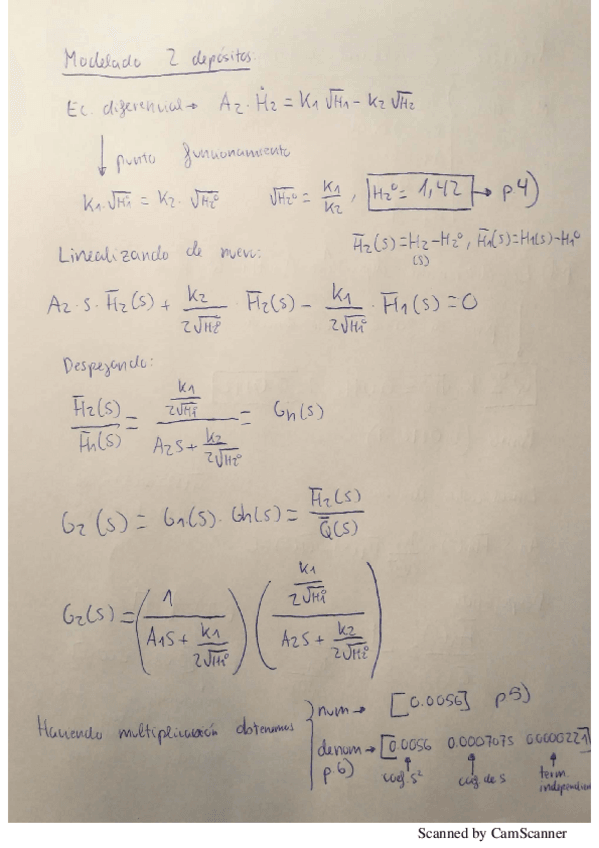 Modelado 2 depósitos:
Ec. diferencial → A2 · Ḣ2 = K1 √H1 − K2 √H2
↓ punto funcionamiento
K1·√H1° = K2 · √H2°   √H2° = K1/K2 , H2° = 1,42 → p4)
Linealizando de nuevo:   H̄2(s) = H2 − H2° , H̄1(s) = H1(s) − H1°
(s)
A2 · s · H̄2(s) + K2/(2√H2°) · H̄2(s) − K1/(2√H1°) · H̄1(s) = 0
Despejando:
H̄2(s)/H̄1(s) = (K1/(2√H1°))/(A2s + K2/(2√H2°)) = Gh(s)
G2(s) = G1(s) · Gh(s) = H̄2(s)/Q̄(s)
G2(s) = (1/(A1s + K1/(2√H1°))) ((K1/(2√H1°))/(A2s + K2/(2√H2°)))
Haciendo multiplicación obtenemos
num → [0.0056] p5)
denom → [0.0056 0.0007075 0.0000221]
p.6)   coef s²   coef de s   term.
independien
Scanned by CamScanner